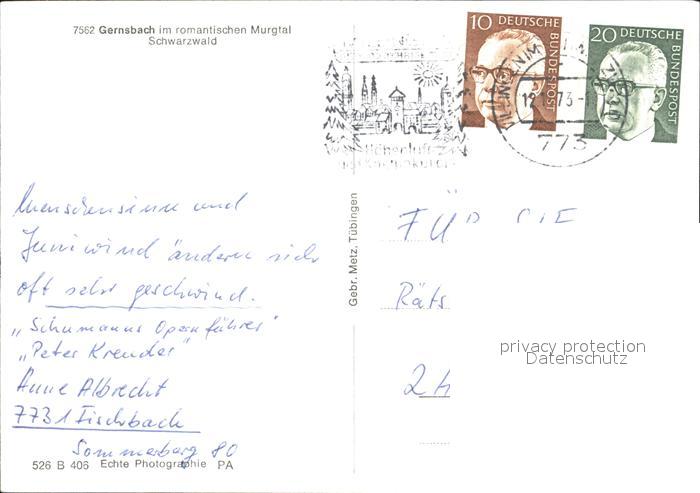 7562 Gernsbach im romantischen Murgtal
Schwarzwald
10 DEUTSCHE BUNDESPOST
20 DEUTSCHE BUNDESPOST
73
773
Menschensinn und
Juniwind ändern sich
oft sehr geschwind.
„Schumanns Opernführer"
„Peter Kreuder"
Anne Albrecht
7731 Fischbach
Sommerberg 80
526 B 406 Echte Photographie PA
Gebr. Metz, Tübingen
FÜR DIE
Räts
2
privacy protection
Datenschutz